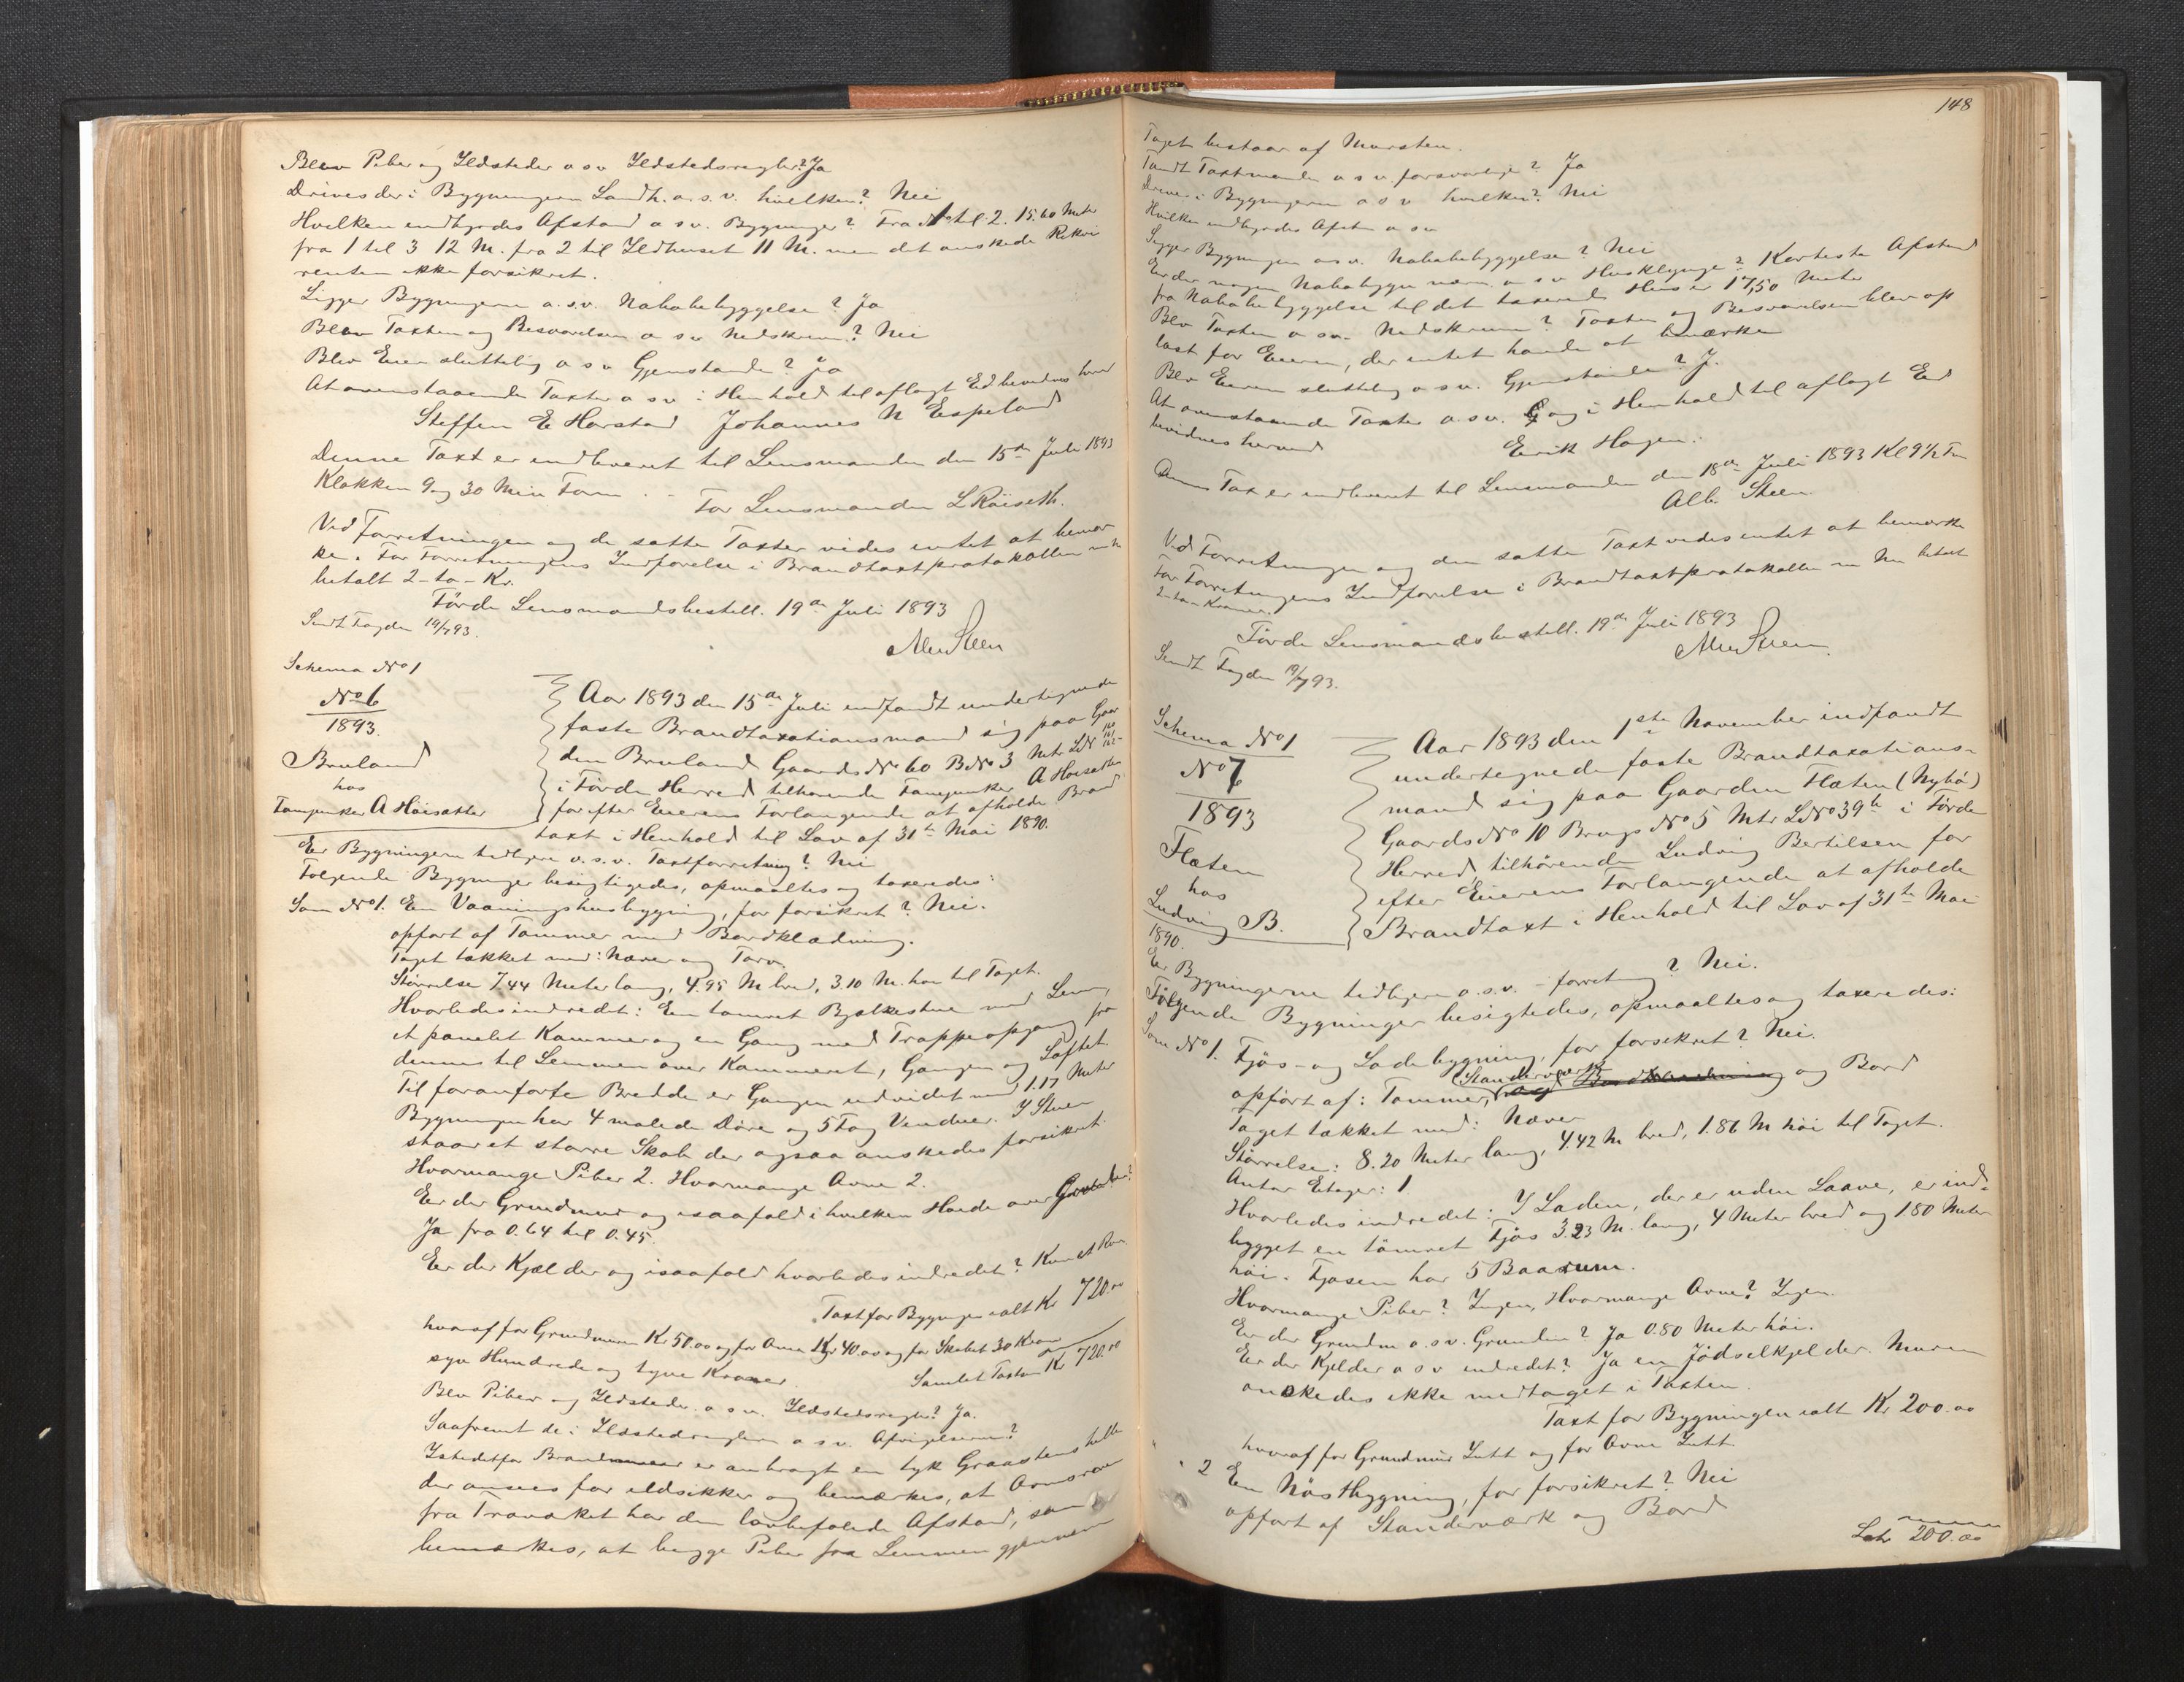 Blev Piber og Ildsteder o s v Ildstedsregler? Ja
Drives der i Bygningerne Landh. o. s. v. hvilken? Nei
Hvilken indbyrdes Afstand o s v. Bygninger? Fra No 1 til 2. 15.60 Meter
fra 1 til 3 12 M. fra 2 til Ildhuset 11 M. men det ønskede Rekvi
renten ikke forsikret.
Ligger Bygningerne o. s. v. Nabobebyggelse? Ja
Blev Taxten og Besvarelsen o s v nedskrevn? Nei
Blev Eieren sluttelig o s v Gjenstande? Ja
At ovenstaaende Taxter o s v i Henhold til aflagt Ed bevidnes herved
Steffen E Horstad Johannes N Espeland
Denne Taxt er indleveret til Lensmanden den 15de Juli 1893
Klokken 9 og 30 Min Form. -
For Lensmanden L Röiseth.
Ved Forretningen og de satte Taxter vides intet at bemær
ke. For Forretningens Indførelse i Brandtaxtprotokollen er
betalt 2 - to - Kr.
Förde Lensmandsbestill. 19de Juli 1893
Alb Steen
Sendt Fogden 19/7 93.
Schema No 1
No 6
1893.
Bruland
hos
Fanejunker A Höisæther
Aar 1893 den 15de Juli indfandt undertegnede
faste Brandtaxationsmand sig paa Gaar
den Bruland Gaards No 60 B No 3 Mtr LNr 160 161 162
i Förde Herred tilhørende Fanejunker A Høisæther
for efter Eierens Forlangende at afholde Brand
taxt i Henhold til Lov af 31te Mai 1890.
Er Bygningerne tidligere o. s. v. Taxtforretning? Nei
Følgende Bygninger besigtigedes, opmaaltes og taxeredes:
Som No 1. En Vaaningshusbygning, før forsikret? Nei.
opført af Tømmer med Bordklædning.
Taget tækket med: Næver og Torv.
Størrelse 7.44 Meter lang, 4.95 M bred, 3.10 M. høi til Taget.
Hvorledes indredt: En tømret Bjælkestue med Lem,
et panelet Kammer og en Gang med Trappeopgang fra
denne til Lemmen over Kammeret, Gangen og Loftet
Til foranførte Bredde er Gangen udvidet med 1.17 Meter
Bygningen har 4 malede Döre og 5 Fag Vinduer. I Stuen
staar et større Skab der ogsaa ønskedes forsikret.
Hvormange Piber 2. Hvormange Ovne 2.
Er der Grundmur og isaafald i hvilken Høide over Grunden?
Ja fra 0.64 til 0.45.
Er der Kjælder og isaafald hvorledes indredet? Kun et Rum
Taxt for Bygningen ialt Kr 720.00
hvoraf for Grundmuren Kr 50.00 og for Ovne Kr 40.00 og for Skabet 30 Kroner
syv Hundrede og tyve Kroner
Samlet Taxtsum Kr 720.00
Blev Piber og Ildsteder. o s v. Ildstedsregler? Ja.
Saafremt de i Ildstedreglerne o s v. Afvigelserne?
Istedetfor Brandmuur er anbragt en tyk Graastenshelle
der ansees for ildsikker og bemærkes, at Ovnsrøret
fra Træværket har den lovbefalede Afstand, som
bemærkes, at begge Piber fra Lemmen gjennem
148
Taget bestaar af Mursten.
Fandt Taxtmanden o s v forsvarlige? Ja
Drives i Bygningerne o s v hvilken? Nei
Hvilken indbyrdes Afstn o s v
Ligger Bygningen o s v. Nabobebyggelse? Nei
Er der nogen Nabobygn nærm. o s v Husklynge? Korteste Afstand
fra Nabobebyggelse til det taxerede Hus er 17,50 Meter
Blev Taxten o s v. Nedskreven? Taxten og Besvarelsen blev op
læst for Eieren, der intet havde at bemærke
Blev Eieren sluttelig o s v. Gjenstande? J.
At ovenstaaende Taxter o. s v. og i Henhold til aflagt Ed
bevidnes herved
Erik Hagen.
Denne Taxt er indleveret til Lensmanden den 18de Juli 1893 Kl 9 1/2 Fm
Alb. Steen.
Ved Forretningen og den satte Taxt vides intet at bemærke
For Forretningens Indførelse i Brandtaxtprotokollen er betalt
2 - to - Kroner.
Förde Lensmandsbestill. 19de Juli 1893
Alb Steen.
Sendt Fogden 19/7 93.
Schema No 1
No 7
1893
Flæten
hos
Ludvig B.
Aar 1893 den 1ste November indfandt
undertegnede faste Brandtaxations-
mand sig paa Gaarden Flæten (Nybö)
Gaards No 10 Brugs No 5 Mtr LNo 39b i Förde
Herred, tilhörende Ludvig Bertilsen for
efter Eierens Forlangende at afholde
Brandtaxt i Henhold til Lov af 31te Mai
1890.
Er Bygningerne tidligere o. s. v. - forretng? Nei.
Følgende Bygninger besigtedes, opmaaltes og taxeredes:
Som No 1. Fjös- og Ladebygning, før forsikret? Nei.
opført af: Tømmer, Standerværk og Bord
Taget tækket med: Næver
Størrelse: 8.20 Meter lang, 4.42 M bred, 1.86 M höi til Taget.
Antar Etager: 1
Hvorledes indredet: I Laden, der er uden Laave, er ind-
bygget en tömret Fjös 3.23 M. lang, 4 Meter bred og 1.80 Meter
höi. Fjøsen har 5 Baasrum.
Hvormange Piber? Ingen, Hvormange Ovne? Ingen.
Er der Grundm o. s v. Grunden? Ja 0.80 Meter höi.
Er der Kjelder o s v indredet? Ja en Jödselkjelder. Muren
ønskedes ikke medtaget i Taxten.
Taxt for Bygningen ialt Kr 200.00
hvoraf for Grundmur Intt og for Ovne Intt
" 2 En Nöstbygning, før forsikret? Nei
opført af Standerværk og Bord
Lat 200.00